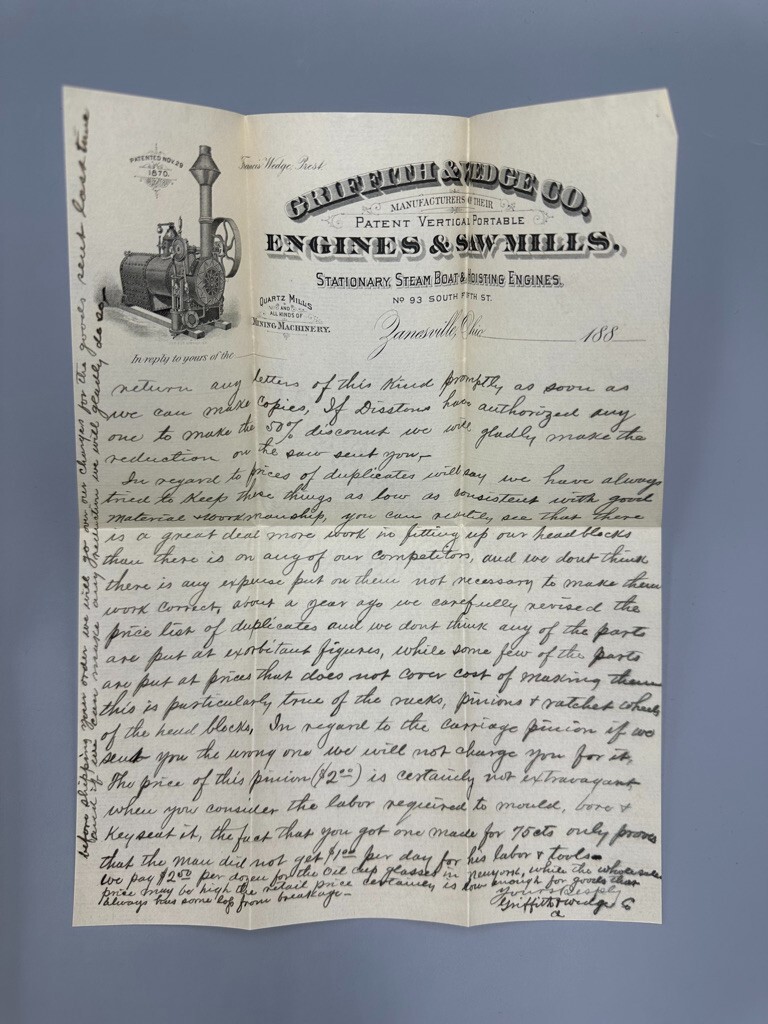 PATENTED NOV. 29
1870.
Francis Wedge, Prest.
GRIFFITH & WEDGE CO.
MANUFACTURERS OF THEIR
PATENT VERTICAL PORTABLE
ENGINES & SAW MILLS.
STATIONARY, STEAM BOAT & HOISTING ENGINES.
No 93 SOUTH FIFTH ST.
QUARTZ MILLS
AND
ALL KINDS OF
MINING MACHINERY.
Zanesville, Ohio 188
In reply to yours of the
return any letters of this kind promptly as soon as
we can make copies, If Disstons have authorized any
one to make the 50% discount we will gladly make the
reduction on the saw sent you,-
In regard to prices of duplicates will say we have always
tried to keep these things as low as consistent with good
material & workmanship, you can readily see that there
is a great deal more work in fitting up our headblocks
than there is on any of our competitors, and we dont think
there is any expense put on them not necessary to make them
work correct, about a year ago we carefully revised the
price list of duplicates and we dont think any of the parts
are put at exorbitant figures, while some few of the parts
are put at prices that does not cover cost of making them
this is particularly true of the racks, pinions & ratchet wheels
of the head blocks, In regard to the carriage pinion if we
sent you the wrong one we will not charge you for it,
The price of this pinion ($2.00) is certainly not extravagant
when you consider the labor required to mould, bore &
Keyseat it, the fact that you got one made for 75cts only proves
that the man did not get $1.00 per day for his labor & tools-
we pay $2.50 per dozen for the oil cup glasses in New York, while the wholesale
price may be high the retail price certainly is low enough for goods that
always has some loss from breakage-
Yours Resply
Griffith & Wedge Co
before shipping your order we will go over our charges for the goods sent last time
and if we can make any reduction we will gladly do so-